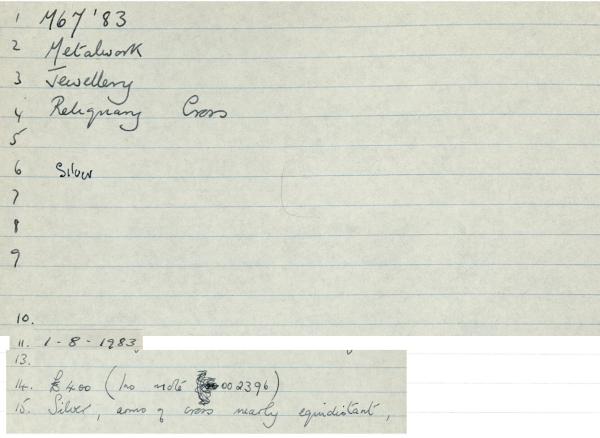 1 M67 '83
2 Metalwork
3 Jewellery
4 Reliquary Cross
5
6 Silver
7
8
9
10.
11. 1-8-1983
13.
14. £400 ( no 002396)
15. Silver, arms of cross nearly equidistant,